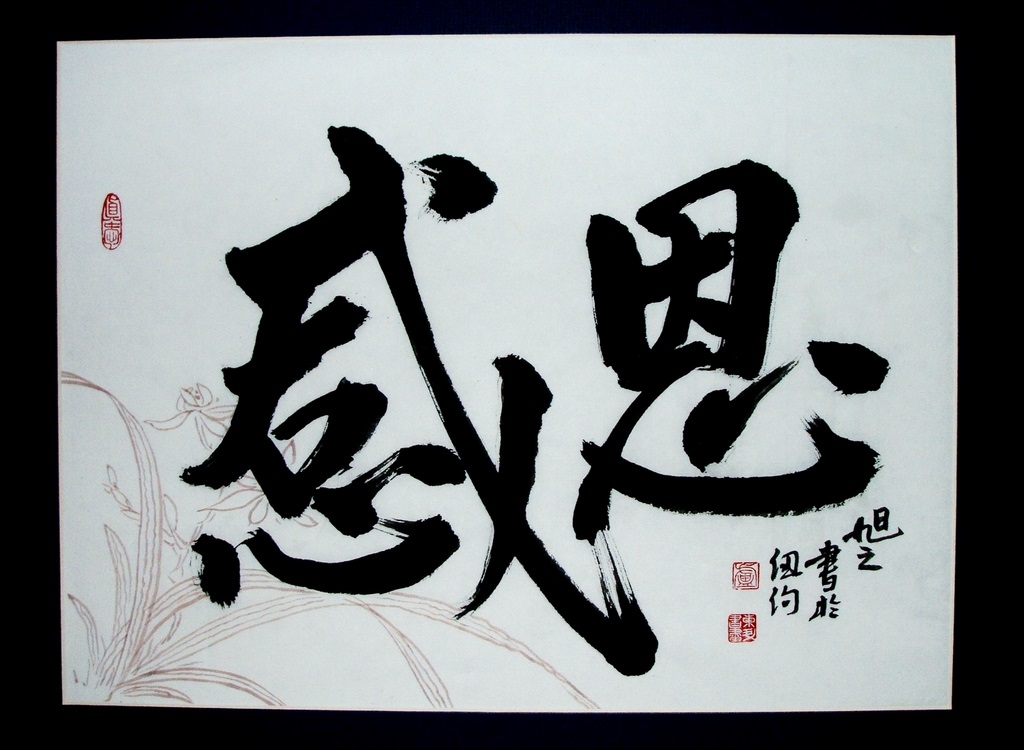 感恩
旭之
書於
紐約